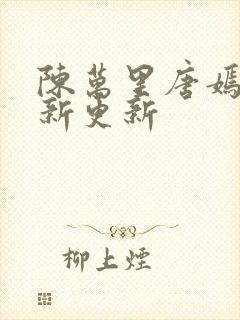 陳萬里唐嫣
新更新
柳上煙